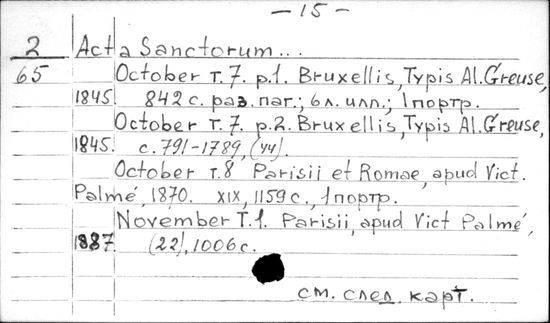 — 15 —
2 Acta Sanctorum...
65 October т. 7. p.1. Bruxellis, Typis Al. Greuse,
1845. 842 с. раз. паг.; 6 л. илл.; 1 портр.
October т. 7. p.2. Bruxellis, Typis Al. Greuse,
1845. с. 791-1789, (44).
October т. 8 Parisii et Romae, apud Vict.
Palmé, 1870. XIX, 1159 с., 1 портр.
November Т. 1. Parisii, apud Vict Palmé,
1887. (22), 1006 с.
см. след. карт.